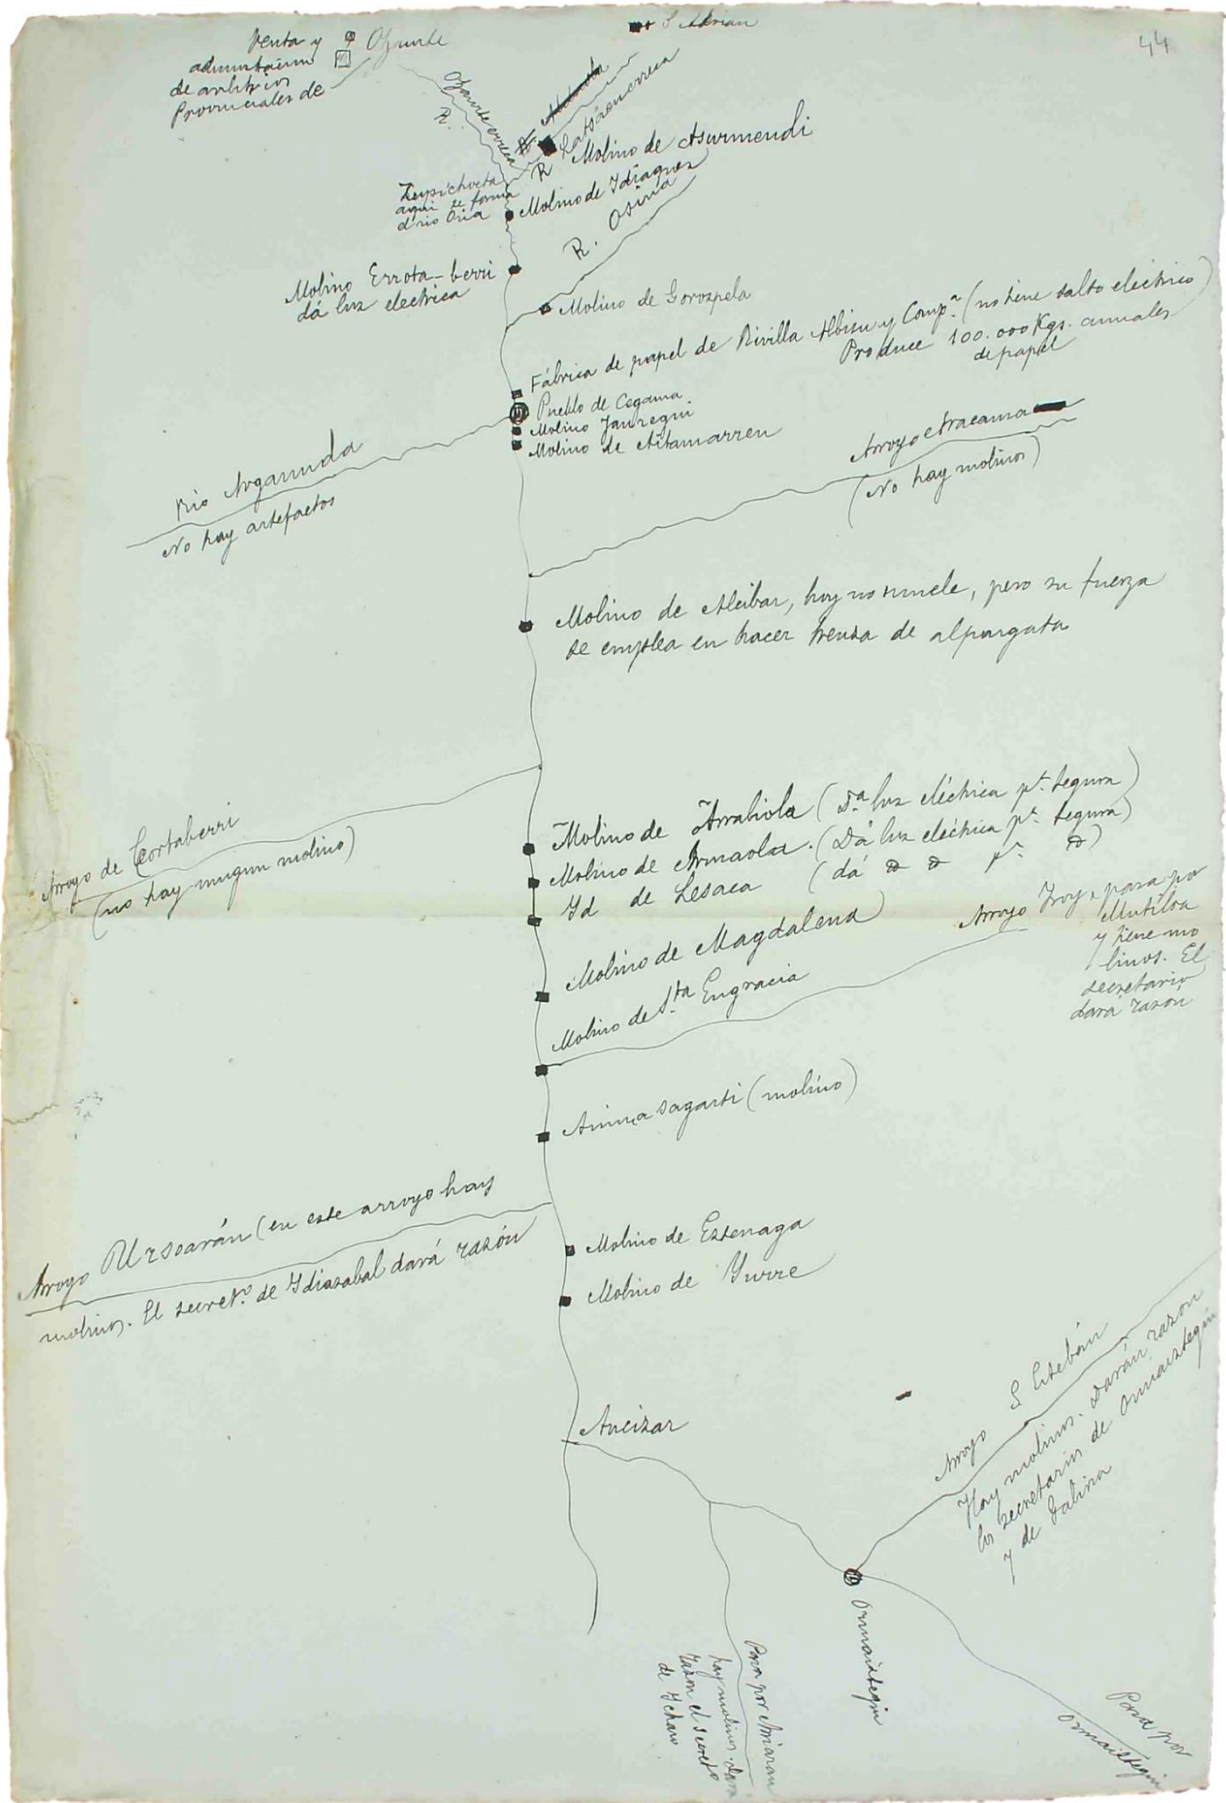 44
S Adrian
Venta y
administración
de arbitrios
Provinciales de
Ozaurte
R. Ozaurte erreca
R Latsaen erreca
Molino de Asurmendi
Zupichueta
aqui se forma
el rio Oria
Molino de Ydiaquez
R. Osina
Molino Errota-berri
dá luz electrica
Molino de Gorospela
Fábrica de papel de Rivilla Albisu y Comp.ª (no tiene salto eléctrico)
Produce 100.000 Kgs. anuales
de papel
Pueblo de Cegama
Molino Jauregui
Molino de Aitamarren
Rio Argarunda
No hay artefactos
Arroyo Aracama
(No hay molinos)
Molino de Aleibar, hoy no muele, pero su fuerza
se emplea en hacer trenza de alpargata
Arroyo de Cortaberri
(no hay ningun molino)
Molino de Arrabiola (Dá luz eléctrica pª. Segura)
Molino de Armaola. (Dá luz eléctrica pª. Segura)
Yd de Lesaca (dá
Molino de Magdalena)
Molino de Sta Engracia
Arroyo Troy, pasa por
Mutiloa
y tiene mo
linos. El
secretario
dará razón
Aimasagasti (molino)
Arroyo Ursoarán (en este arroyo hay
molinos. El secret.º de Ydiazabal dará razón
Molino de Estenaga
Molino de Yurre
Arroyo S Esteban
Hay molinos. Darán razon
los secretarios de Ormaiztegui
y de Gabiria
Aucizar
Ormaiztegui
Pasa por Arriaran
hay molinos. dará
razon el secreto
de Ychaso
Pasa por
Ormaiztegui